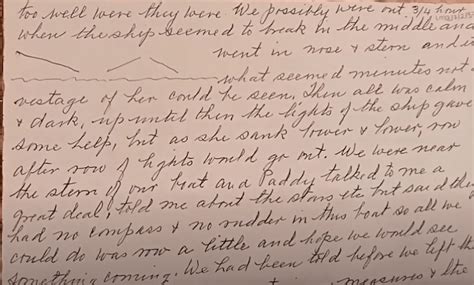 too well were they were. We possibly were out 3/4 hour
when the ship seemed to break in the middle and
went in nose & stern and in
what seemed minutes not a
vestage of her could be seen. Then all was calm
& dark, up until then the lights of the ship gave
some help, but as she sank lower & lower, row
after row of lights would go out. We were near
the stern of our boat and Paddy talked to me a
great deal, told me about the stars etc but said they
had no compass & no rudder in this boat so all we
could do was row a little and hope we would see
something coming. We had been told before we left the
measures & the